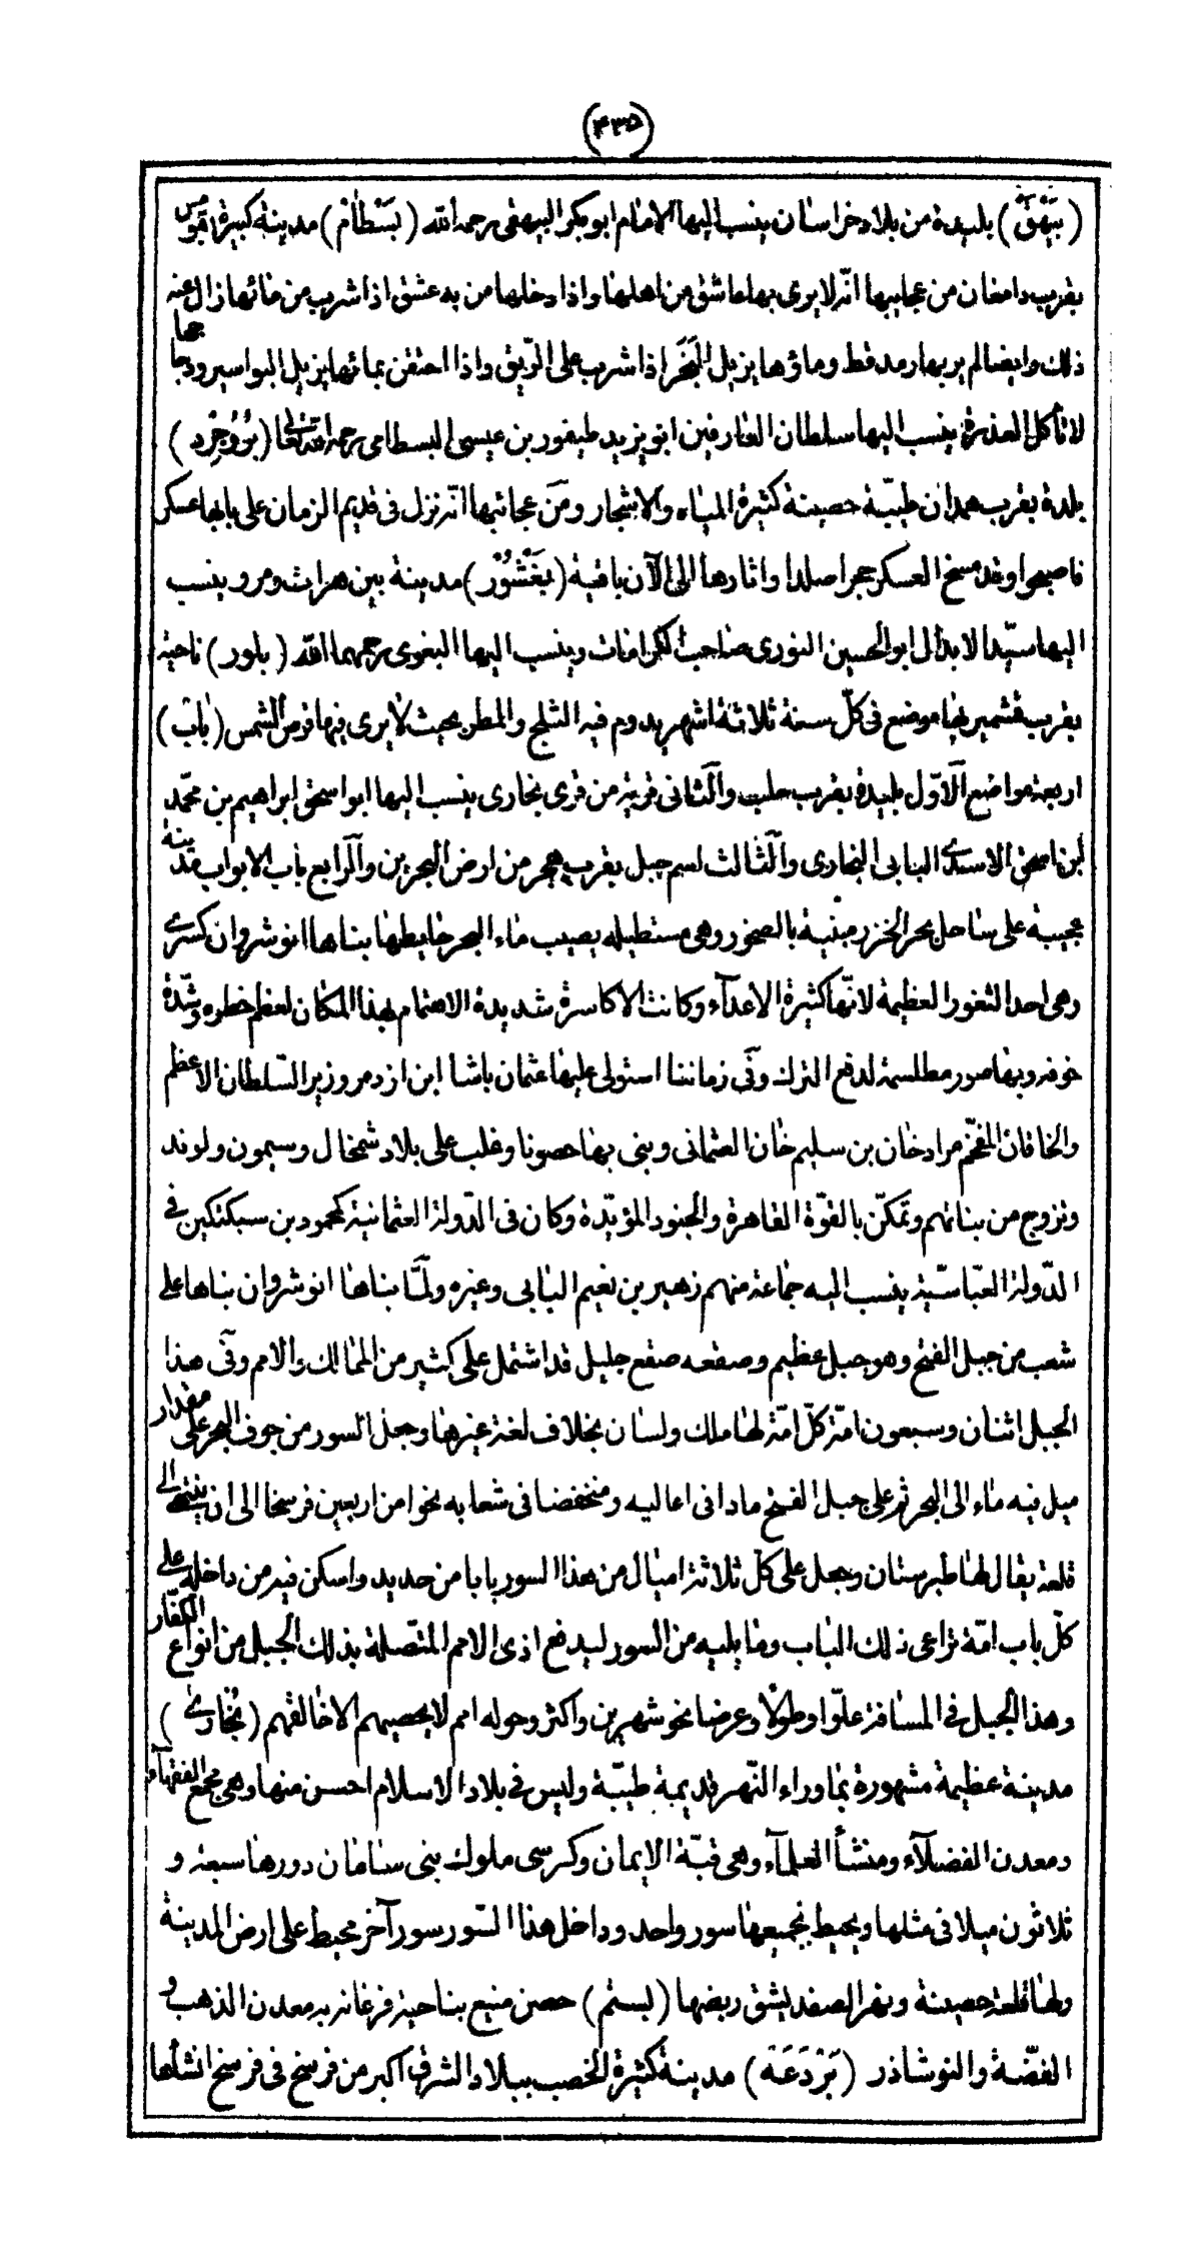 (٤٣٥)
(بَيْهَقْ) بليدة من بلاد خراسان ينسب اليها الامام ابو بكر البيهقى رحمه الله (بَسْطَامْ) مدينة كبيرة بقومس
بقرب دامغان من عجايبها انّه لا يرى بها عاشق من اهلها واذا دخلها من به عشق اذا شرب من مائها زال عنه
ذلك وايضا لم ير بها رمد قط وماؤها يزيل البَخَر اذا شرب على الرّيق واذا احتقن بمائها يزيل البواسير ودجاجها
لا تأكل العذرة ينسب اليها سلطان العارفين ابو يزيد طيفور بن عيسى البسطامى رحمه الله تعالى (بُرُوجِرْد)
بلدة بقرب همدان طيّبة حصينة كثيرة المياه والاشجار ومن عجائبها انّه نزل فى قديم الزمان على بابها عسكر
فاصبحوا وقد مسخ العسكر حجرا صلدا واثارها الى الآن باقية (بَغْشُوْر) مدينة بين هراة ومرو ينسب
اليها سيّد الابدال ابو الحسين النورى صاحب الكرامات وينسب اليها البغوى رحمهما الله (بلور) ناحية
بقرب قشمير بها موضع فى كلّ سنة ثلاثة اشهر يدوم فيه الثلج والمطر بحيث لا يرى فيها قرص الشمس (بَاب)
اربعة مواضع الاوّل بليدة بقرب حلب والثانى قرية من قرى بخارى ينسب اليها ابو اسحق ابراهيم بن محمّد
ابن اسحق الاسدى البابى البخارى والثالث اسم جبل بقرب هجر من ارض البحرين والرابع باب الابواب مدينة
عجيبة على ساحل بحر الخزر مبنية بالصخور وهى مستطيله يصيب ماء البحر حايطها بناها انوشروان كسرى
وهى احد الثغور العظيمة لانّها كثيرة الاعدآء وكانت الاكاسرة شديدة الاهتمام بهذا المكان لعظم خطره وشدّة
خوفه وبها صور مطلسمة لدفع الترك وفى زماننا استولى عليها عثمان باشا ابن ازدمر وزير السّلطان الاعظم
والخاقان المفخّم مراد خان بن سليم خان العثمانى وبنى بها حصونا وغلب على بلاد شمخال وسيمون ولوند
وتزوج من بناتهم وتمكّن بالقوّة القاهرة والجنود المؤيّدة وكان فى الدّولة العثمانية كمحمود بن سبكتكين فى
الدّولة العبّاسيّة ينسب اليه جماعة منهم زهير بن نعيم البابى وغيره ولمّا بناها انوشروان بناها على
شعب من جبل الفتح وهو جبل عظيم وصقعه صقع جليل قد اشتمل على كثير من الممالك والامم وفى هذا
الجبل اثنان وسبعون امّة كلّ امّة لها ملك ولسان بخلاف لغة غيرها وجعل السور من جوف البحر على مقدار
ميل فيه ماء الى البحر ثم على جبل الفتح مادا فى اعاليه ومنخفضا فى شعابه نحوا من اربعين فرسخا الى ان ينتهى الى
قلعة يقال لها طبرستان وجعل على كلّ ثلاثة اميال من هذا السور بابا من حديد واسكن فيه من داخله على
كلّ باب امّة تراعى ذلك الباب وما يليه من السور ليدفع اذى الامم المتصلة بذلك الجبل من انواع الكفّار
وهذا الجبل فى المسافة علوّا وطولا وعرضا نحو شهرين واكثر وحوله امم لا يحصيهم الا خالقهم (بُخَارى)
مدينة عظيمة مشهورة بما وراء النّهر قديمة طيّبة وليس فى بلاد الاسلام احسن منها وهى مجمع الفقهآء
ومعدن الفضلآء ومنشأ العلمآء وهى قبّة الايمان وكرسى ملوك بنى سامان دورها سبعة و
ثلاثون ميلا فى مثلها ويحيط بجميعها سور واحد وداخل هذا السّور سور آخر محيط على ارض المدينة
ولها قلعة حصينة ونهر الصغد يشق ربضها (بستم) حصن منيع بناحية فرغانه به معدن الذهب و
الفضّة والنوشاذر (بَرْدَعَة) مدينة كثيرة الخصب ببلاد الشرق اكبر من فرسخ فى فرسخ انشأها